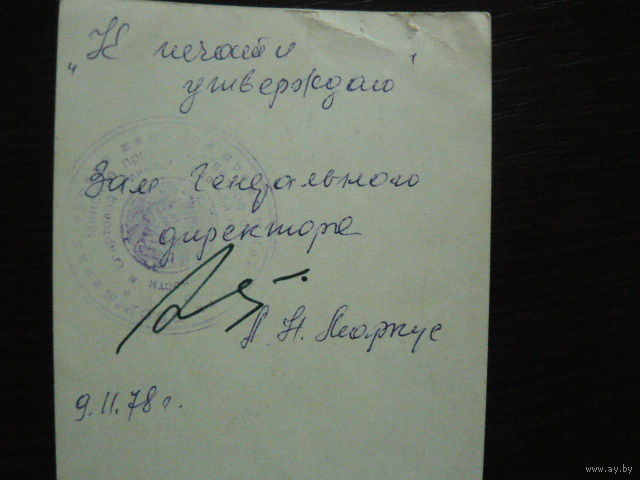 „К печати,
утверждаю"
Зам Гендального
директора
Л. Н. Маркус
9.11.78 г.
www.ay.by